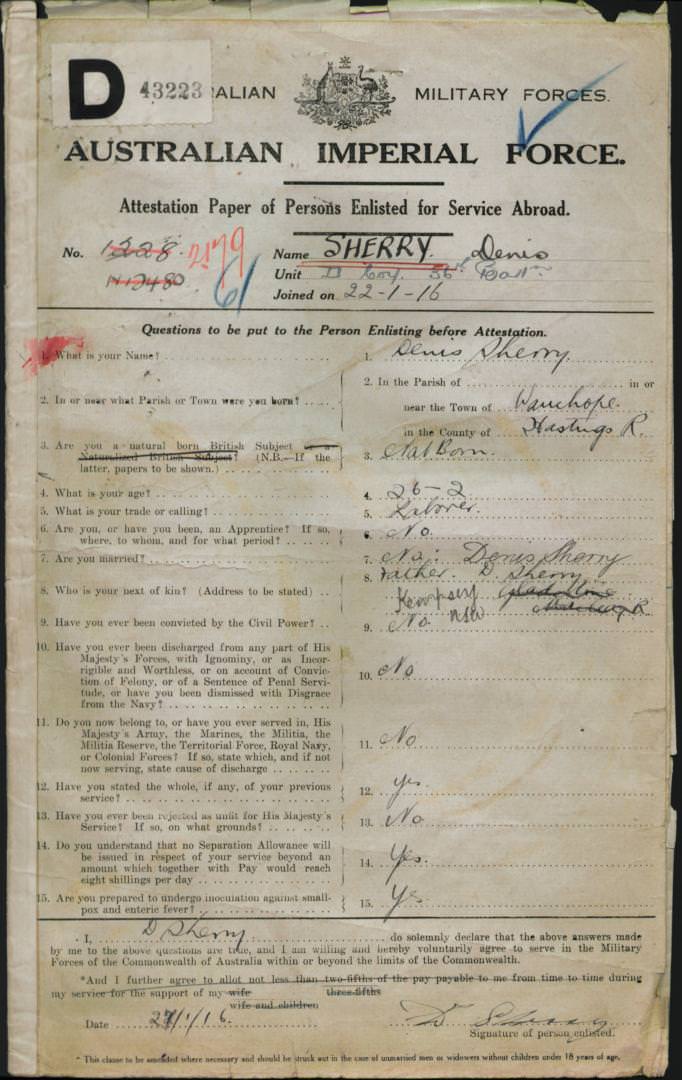 D 43223 RALIAN MILITARY FORCES.
AUSTRALIAN IMPERIAL FORCE.
Attestation Paper of Persons Enlisted for Service Abroad.
No. 1228 2179 Name SHERRY. Denis
N12480 61 Unit D Coy. 36th Battn
Joined on 22-1-16
Questions to be put to the Person Enlisting before Attestation.
1. What is your Name? 1. Denis Sherry
2. In the Parish of in or
2. In or near what Parish or Town were you born? near the Town of Wauchope
in the County of Hastings R.
3. Are you a natural born British Subject or a
Naturalized British Subject? (N.B.—If the 3. Nat Born.
latter, papers to be shown.)
4. What is your age? 4. 26-2
5. What is your trade or calling? 5. Laborer.
6. Are you, or have you been, an Apprentice? If so, 6. No
where, to whom, and for what period?
7. Are you married? 7. No: Denis Sherry
8. Father. D Sherry
8. Who is your next of kin? (Address to be stated) Kempsey
NSW R
9. Have you ever been convicted by the Civil Power? 9. No
10. Have you ever been discharged from any part of His
Majesty's Forces, with Ignominy, or as Incor-
rigible and Worthless, or on account of Convic-
tion of Felony, or of a Sentence of Penal Servi- 10. No
tude, or have you been dismissed with Disgrace
from the Navy?
11. Do you now belong to, or have you ever served in, His
Majesty's Army, the Marines, the Militia, the
Militia Reserve, the Territorial Force, Royal Navy, 11. No
or Colonial Forces? If so, state which, and if not
now serving, state cause of discharge
12. Have you stated the whole, if any, of your previous 12. yes
service?
13. Have you ever been rejected as unfit for His Majesty's 13. No
Service? If so, on what grounds?
14. Do you understand that no Separation Allowance will
be issued in respect of your service beyond an 14. Yes.
amount which together with Pay would reach
eight shillings per day
15. Are you prepared to undergo inoculation against small- 15. Yes
pox and enteric fever?
I, D Sherry do solemnly declare that the above answers made
by me to the above questions are true, and I am willing and hereby voluntarily agree to serve in the Military
Forces of the Commonwealth of Australia within or beyond the limits of the Commonwealth.
*And I further agree to allot not less than two-fifths of the pay payable to me from time to time during
my service for the support of my wife three-fifths
wife and children
Date 27/1/16. D Sherry
Signature of person enlisted.
* This clause to be amended where necessary and should be struck out in the case of unmarried men or widowers without children under 18 years of age.